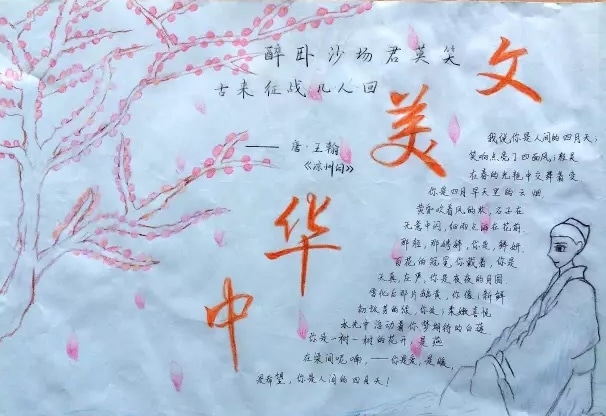 醉卧沙场君莫笑
古来征战几人回
——唐·王翰
《凉州词》
中华美文
我说你是人间的四月天;
笑响点亮了四面风;轻灵
在春的光艳中交舞着变
你是四月早天里的云烟
黄昏吹着风的软,星子在
无意中闪,细雨点洒在花前
那轻,那娉婷,你是,鲜妍
百花的冠冕,你戴着,你是
天真,庄严,你是夜夜的月圆
雪化后那片鹅黄,你像;新鲜
初放芽的绿,你是;柔嫩喜悦
水光中浮动着你梦期待的白莲
你是一树一树的花开,是燕
在梁间呢喃,——你是爱,是暖,
是希望,你是人间的四月天!